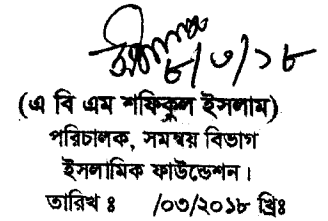 ৮/৩/১৮
(এ বি এম শফিকুল ইসলাম)
পরিচালক, সমন্বয় বিভাগ
ইসলামিক ফাউন্ডেশন।
তারিখ ঃ /০৩/২০১৮ খ্রিঃ